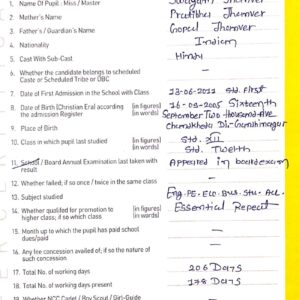 1. Name Of Pupil : Miss / Master
2. Mother's Name Pratibha Thanver
3. Father's / Guardian's Name Gopal Thanver
4. Nationality Indian
5. Cast With Sub-Cast Hindu
6. Whether the candidate belongs to scheduled
Caste or Scheduled Tribe or OBC
7. Date of First Admission in the School with Class 13-06-2011 Std. First
8. Date of Birth (Christian Era) according (in figures) 16-09-2005 Sixteenth
the admission Register (in words) September Two thousand five
9. Place of Birth
10. Class in which pupil last studied (in figures) Std. XII
(in words) Std. Twelth
11. School / Board Annual Examination last taken with Appeared in board exam
result
12. Whether failed, if so once / twice in the same class
13. Subject studied Eng. PE. Eco. Bus. Stu. Acc.
14. Whether qualified for promotion to (in figures) Essential Repeat
higher class; if so which class (in words)
15. Month up to which the pupil has paid school
dues/paid
16. Any fee concession availed of; if so the nature of
such concession
17. Total No. of working days 206 Days
18. Total No. of working days present 198 Days
19. Whether NCC Cadet / Boy Scout / Girl-Guide